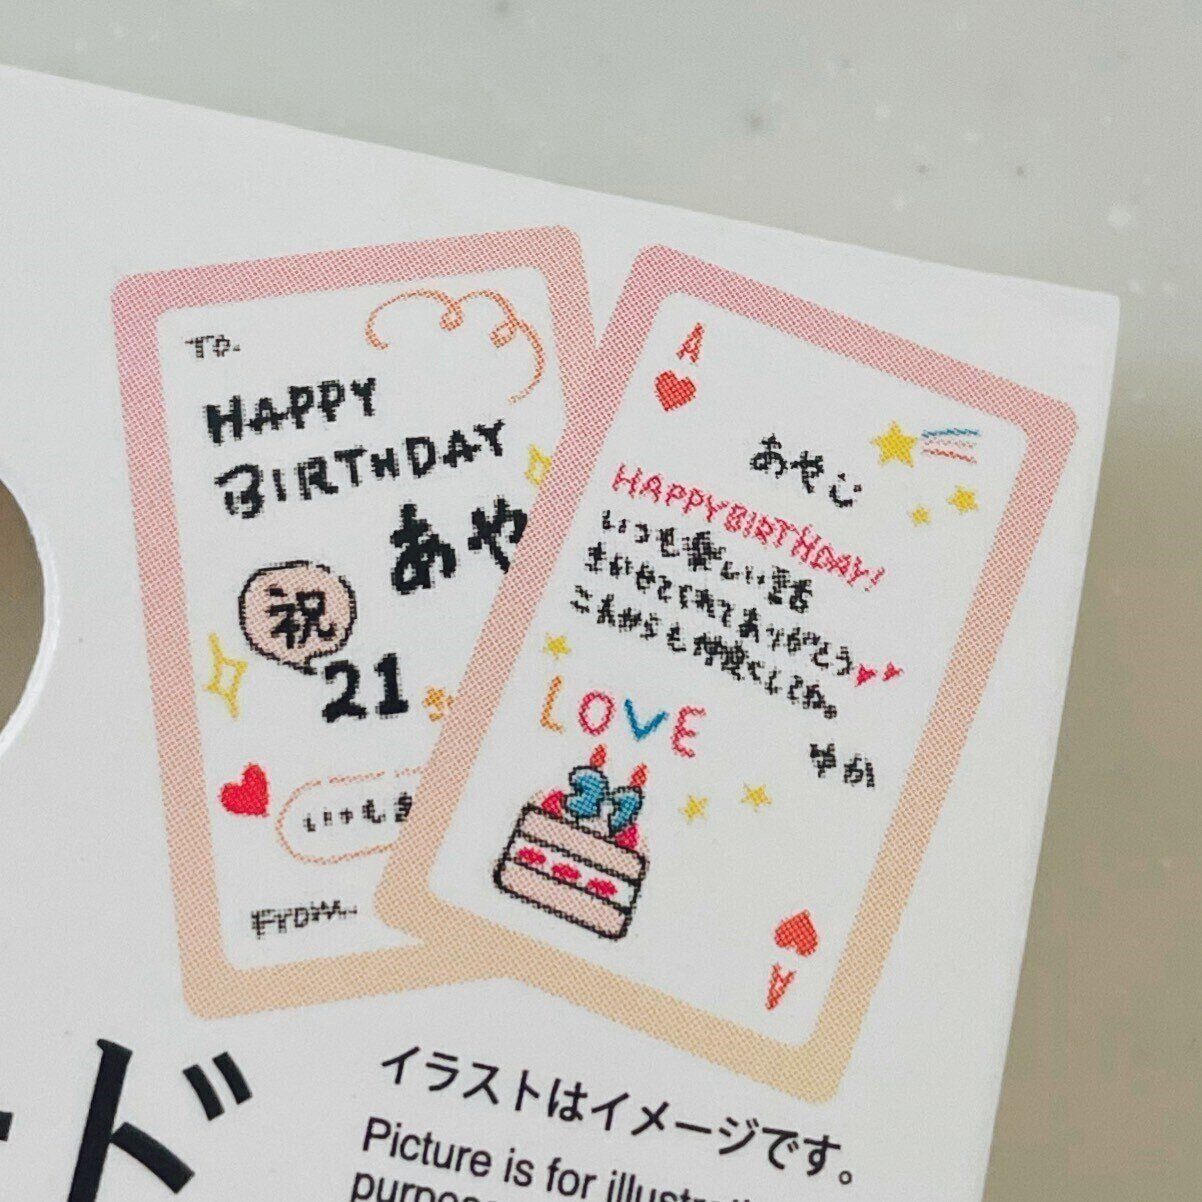 To.
HAPPY
BIRTHDAY
あや
祝
21
いつも
From.
A
あやじ
HAPPY BIRTHDAY!
いつも優しい言葉
きかせてくれてありがとう
これからも仲良くしてね。
LOVE
21
やか
A
ード
イラストはイメージです。
Picture is for